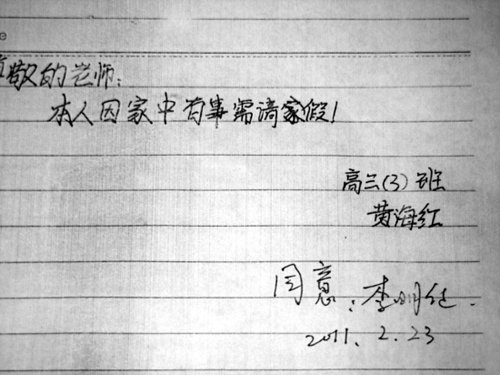 尊敬的老师：
本人因家中有事需请家假！
高三(3)班
黄海红
同意：李明任.
2011. 2. 23